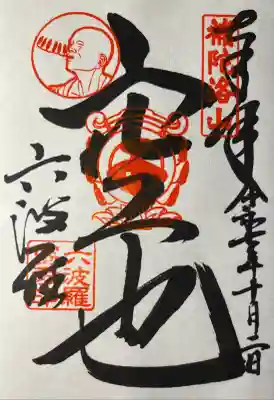 奉拝
十月二日
補陀洛山
空也
六波羅
六波羅